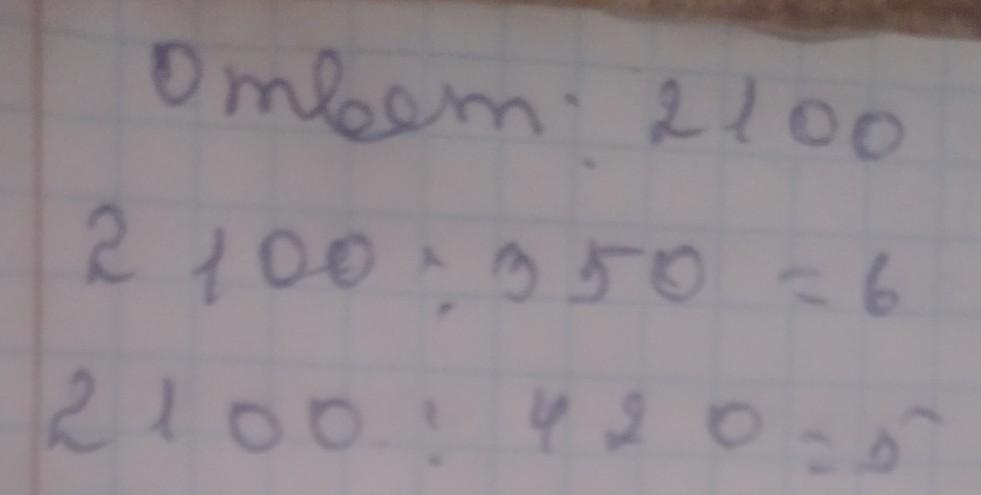 Ответ: 2100
2100 : 350 = 6
2100 : 420 = 5